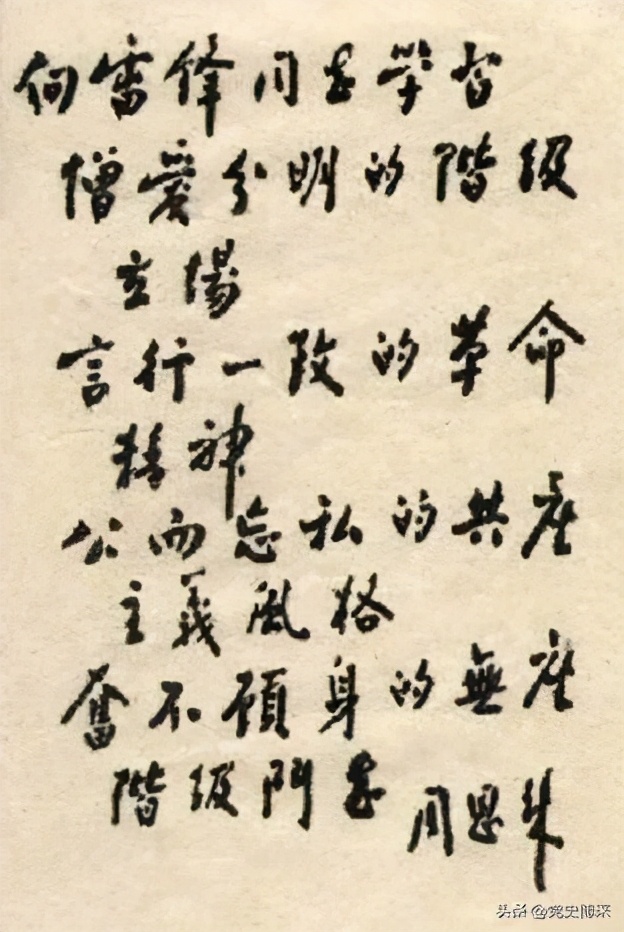 向雷锋同志学习
憎爱分明的階级
立場
言行一致的革命
精神
公而忘私的共产
主義風格
奮不顧身的無产
階级鬥志
周恩来
头条 @党史博采